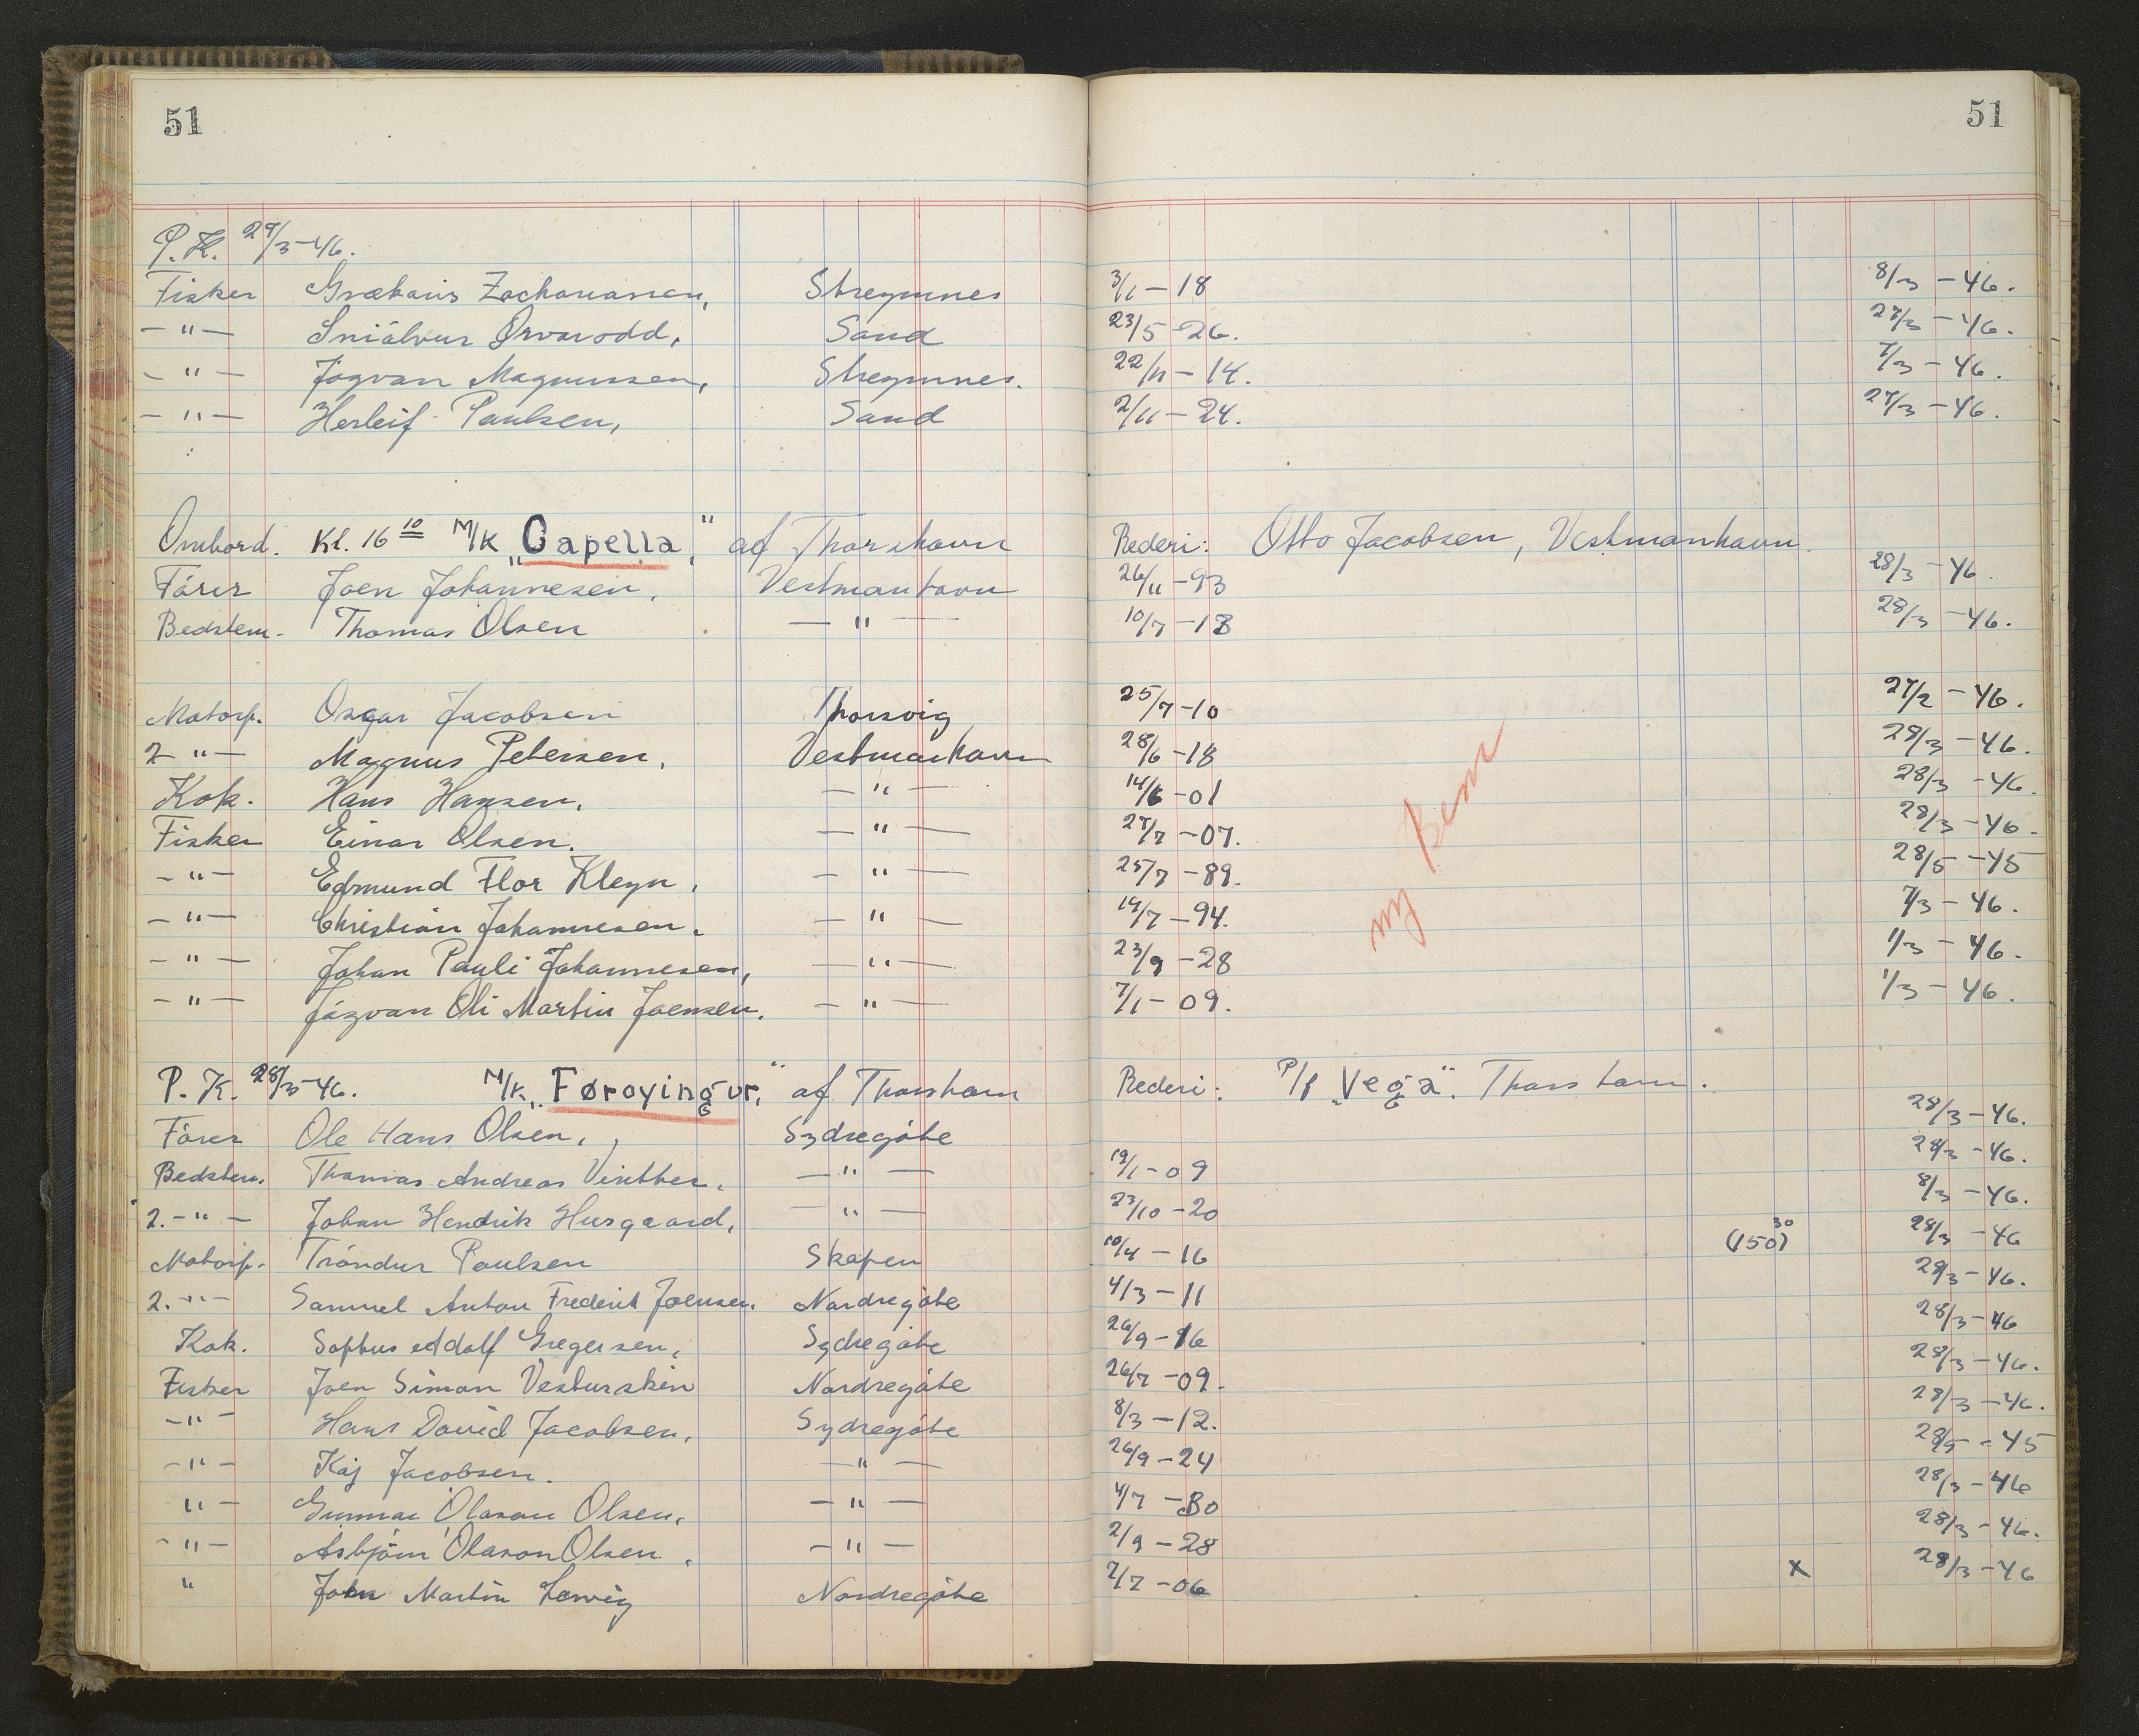 51 51
P.K. 29/3-46.
Fisker Grækaris Zachariassen, Streymnes 3/1-18 8/3-46.
-"- Sniálvur Ørvarodd, Sand 23/5-26. 27/3-46.
-"- Jógvan Magnussen, Streymnes. 22/11-14. 7/3-46.
-"- Herleif Paulsen, Sand 2/11-24. 27/3-46.
Ombord. Kl. 16 10 M/K „Capella" af Thorshavn Rederi: Otto Jacobsen, Vestmanhavn.
Fører Joen Johannesen, Vestmanhavn 26/11-93 28/3-46.
Bedstem. Thomas Olsen -"- 10/7-18 28/3-46.
Motorp. Osgar Jacobsen Thorsvig 25/7-10 27/2-46.
2 -"- Magnus Petersen, Vestmanhavn 28/6-18 28/3-46.
Kok. Hans Hansen, -"- 14/6-01 28/3-46.
Fisker Einar Olsen. -"- 27/7-07. 28/3-46.
-"- Edmund Flor Kleyn, -"- 25/7-89. 28/5-45
-"- Christian Johannesen, -"- 19/7-94. 7/3-46.
-"- Johan Pauli Johannesen, -"- 23/9-28 1/3-46.
-"- Jógvan Oli Martin Joensen, -"- 7/1-09. 1/3-46.
P.K. 28/3-46. M/K „Føroyingur," af Thorshavn Rederi: P/f „Vega". Thorshavn.
Fører Ole Hans Olsen, Sydregøte 28/3-46.
Bedstem. Thomas Andreas Vinther, -"- 19/1-09 28/3-46.
2.-"- Johan Hendrik Husgaard, -"- 23/10-20 8/3-46.
Motorp. Tróndur Poulsen Skapen 10/4-16 (150) 30 28/3-46
2.-"- Samuel Anton Frederik Joensen, Nordregøte 4/3-11 28/3-46.
Kok. Sophus Adolf Gregersen, Sydregøte 26/9-16 28/3-46
Fisker Joen Simon Vesturskin Nordregøte 26/7-09. 28/3-46.
-"- Hans David Jacobsen, Sydregøte 8/3-12. 28/3-46.
-"- Kaj Jacobsen. -"- 26/9-24 28/5-45
"- Gunnar Ólason Olsen, -"- 4/7-30 28/3-46
-"- Asbjørn Ólason Olsen, -"- 2/9-28 28/3-46.
" John Martin Lervig Nordregøte 7/7-06 x 28/3-46